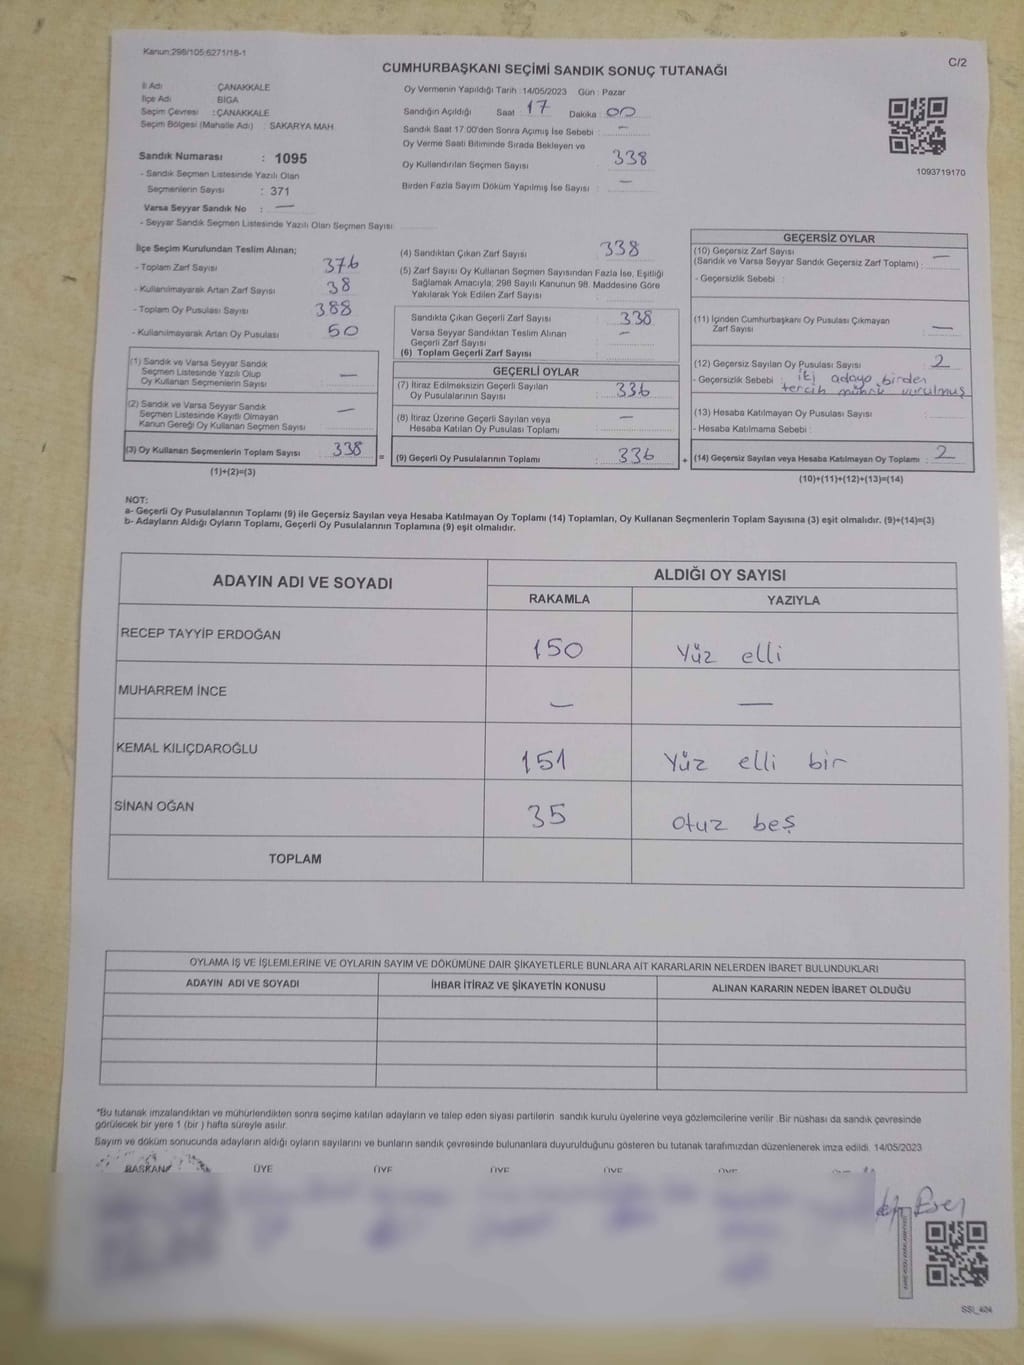 Kanun:298/105;6271/18-1
C/2
CUMHURBAŞKANI SEÇİMİ SANDIK SONUÇ TUTANAĞI
İl Adı : ÇANAKKALE
İlçe Adı BİGA
Seçim Çevresi : ÇANAKKALE
Seçim Bölgesi (Mahalle Adı) : SAKARYA MAH.
Oy Vermenin Yapıldığı Tarih : 14/05/2023 Gün : Pazar
Sandığın Açıldığı Saat 17 Dakika : 00
Sandık Saat 17:00'den Sonra Açımış İse Sebebi : —
Oy Verme Saati Bitiminde Sırada Bekleyen ve
Oy Kullandırılan Seçmen Sayısı 338
Birden Fazla Sayım Döküm Yapılmış İse Sayısı : —
1093719170
Sandık Numarası : 1095
- Sandık Seçmen Listesinde Yazılı Olan
Seçmenlerin Sayısı : 371
Varsa Seyyar Sandık No : —
- Seyyar Sandık Seçmen Listesinde Yazılı Olan Seçmen Sayısı:
İlçe Seçim Kurulundan Teslim Alınan;
- Toplam Zarf Sayısı 376
- Kullanılmayarak Artan Zarf Sayısı 38
- Toplam Oy Pusulası Sayısı 388
- Kullanılmayarak Artan Oy Pusulası 50
(1) Sandık ve Varsa Seyyar Sandık
Seçmen Listesinde Yazılı Olup
Oy Kullanan Seçmenlerin Sayısı : —
(2) Sandık ve Varsa Seyyar Sandık
Seçmen Listesinde Kayıtlı Olmayan
Kanun Gereği Oy Kullanan Seçmen Sayısı : —
(3) Oy Kullanan Seçmenlerin Toplam Sayısı : 338
(1)+(2)=(3)
=
(4) Sandıktan Çıkan Zarf Sayısı 338
(5) Zarf Sayısı Oy Kullanan Seçmen Sayısından Fazla İse, Eşitliği
Sağlamak Amacıyla; 298 Sayılı Kanunun 98. Maddesine Göre
Yakılarak Yok Edilen Zarf Sayısı
Sandıkta Çıkan Geçerli Zarf Sayısı : 338
Varsa Seyyar Sandıktan Teslim Alınan
Geçerli Zarf Sayısı : —
(6) Toplam Geçerli Zarf Sayısı :
GEÇERLİ OYLAR
(7) İtiraz Edilmeksizin Geçerli Sayılan
Oy Pusulalarının Sayısı : 336
(8) İtiraz Üzerine Geçerli Sayılan veya
Hesaba Katılan Oy Pusulası Toplamı : —
(9) Geçerli Oy Pusulalarının Toplamı : 336
+
GEÇERSİZ OYLAR
(10) Geçersiz Zarf Sayısı
(Sandık ve Varsa Seyyar Sandık Geçersiz Zarf Toplamı) : —
- Geçersizlik Sebebi :
(11) İçinden Cumhurbaşkanı Oy Pusulası Çıkmayan
Zarf Sayısı : —
(12) Geçersiz Sayılan Oy Pusulası Sayısı : 2
- Geçersizlik Sebebi : iki adaya birden
tercih mührü vurulmuş
(13) Hesaba Katılmayan Oy Pusulası Sayısı :
- Hesaba Katılmama Sebebi :
(14) Geçersiz Sayılan veya Hesaba Katılmayan Oy Toplamı : 2
(10)+(11)+(12)+(13)=(14)
NOT:
a- Geçerli Oy Pusulalarının Toplamı (9) ile Geçersiz Sayılan veya Hesaba Katılmayan Oy Toplamı (14) Toplamları, Oy Kullanan Seçmenlerin Toplam Sayısına (3) eşit olmalıdır. (9)+(14)=(3)
b- Adayların Aldığı Oyların Toplamı, Geçerli Oy Pusulalarının Toplamına (9) eşit olmalıdır.
ADAYIN ADI VE SOYADI
ALDIĞI OY SAYISI
RAKAMLA YAZIYLA
RECEP TAYYİP ERDOĞAN 150 Yüz elli
MUHARREM İNCE — —
KEMAL KILIÇDAROĞLU 151 Yüz elli bir
SİNAN OĞAN 35 otuz beş
TOPLAM
OYLAMA İŞ VE İŞLEMLERİNE VE OYLARIN SAYIM VE DÖKÜMÜNE DAİR ŞİKAYETLERLE BUNLARA AİT KARARLARIN NELERDEN İBARET BULUNDUKLARI
ADAYIN ADI VE SOYADI İHBAR İTİRAZ VE ŞİKAYETİN KONUSU ALINAN KARARIN NEDEN İBARET OLDUĞU
*Bu tutanak imzalandıktan ve mühürlendikten sonra seçime katılan adayların ve talep eden siyasi partilerin sandık kurulu üyelerine veya gözlemcilerine verilir. Bir nüshası da sandık çevresinde
görülecek bir yere 1 (bir ) hafta süreyle asılır.
Sayım ve döküm sonucunda adayların aldığı oyların sayılarını ve bunların sandık çevresinde bulunanlara duyurulduğunu gösteren bu tutanak tarafımızdan düzenlenerek imza edildi. 14/05/2023
BAŞKAN ÜYE ÜYE ÜYE ÜYE ÜYE
SSI_404